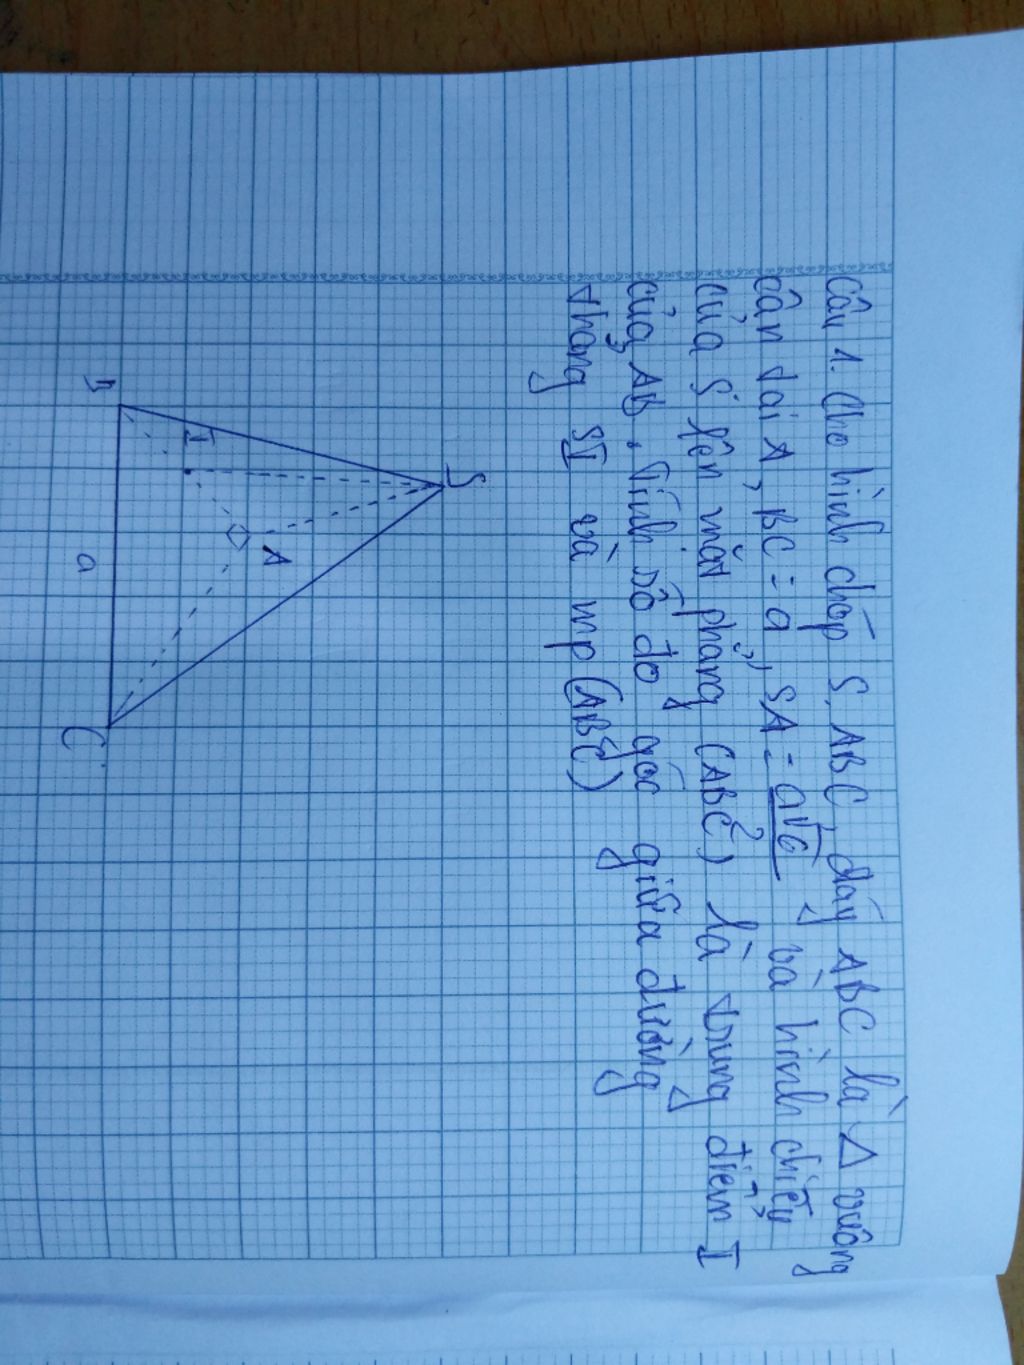 Câu 1. Cho hình chóp S.ABC, đáy ABC là Δ vuông
cân tại A, BC = a, SA = a√6 và hình chiếu
của S lên mặt phẳng (ABC) là trung điểm I
của AB. Tính số đo góc giữa đường
thẳng SI và mp (ABC)
S
I
A
B
a
C